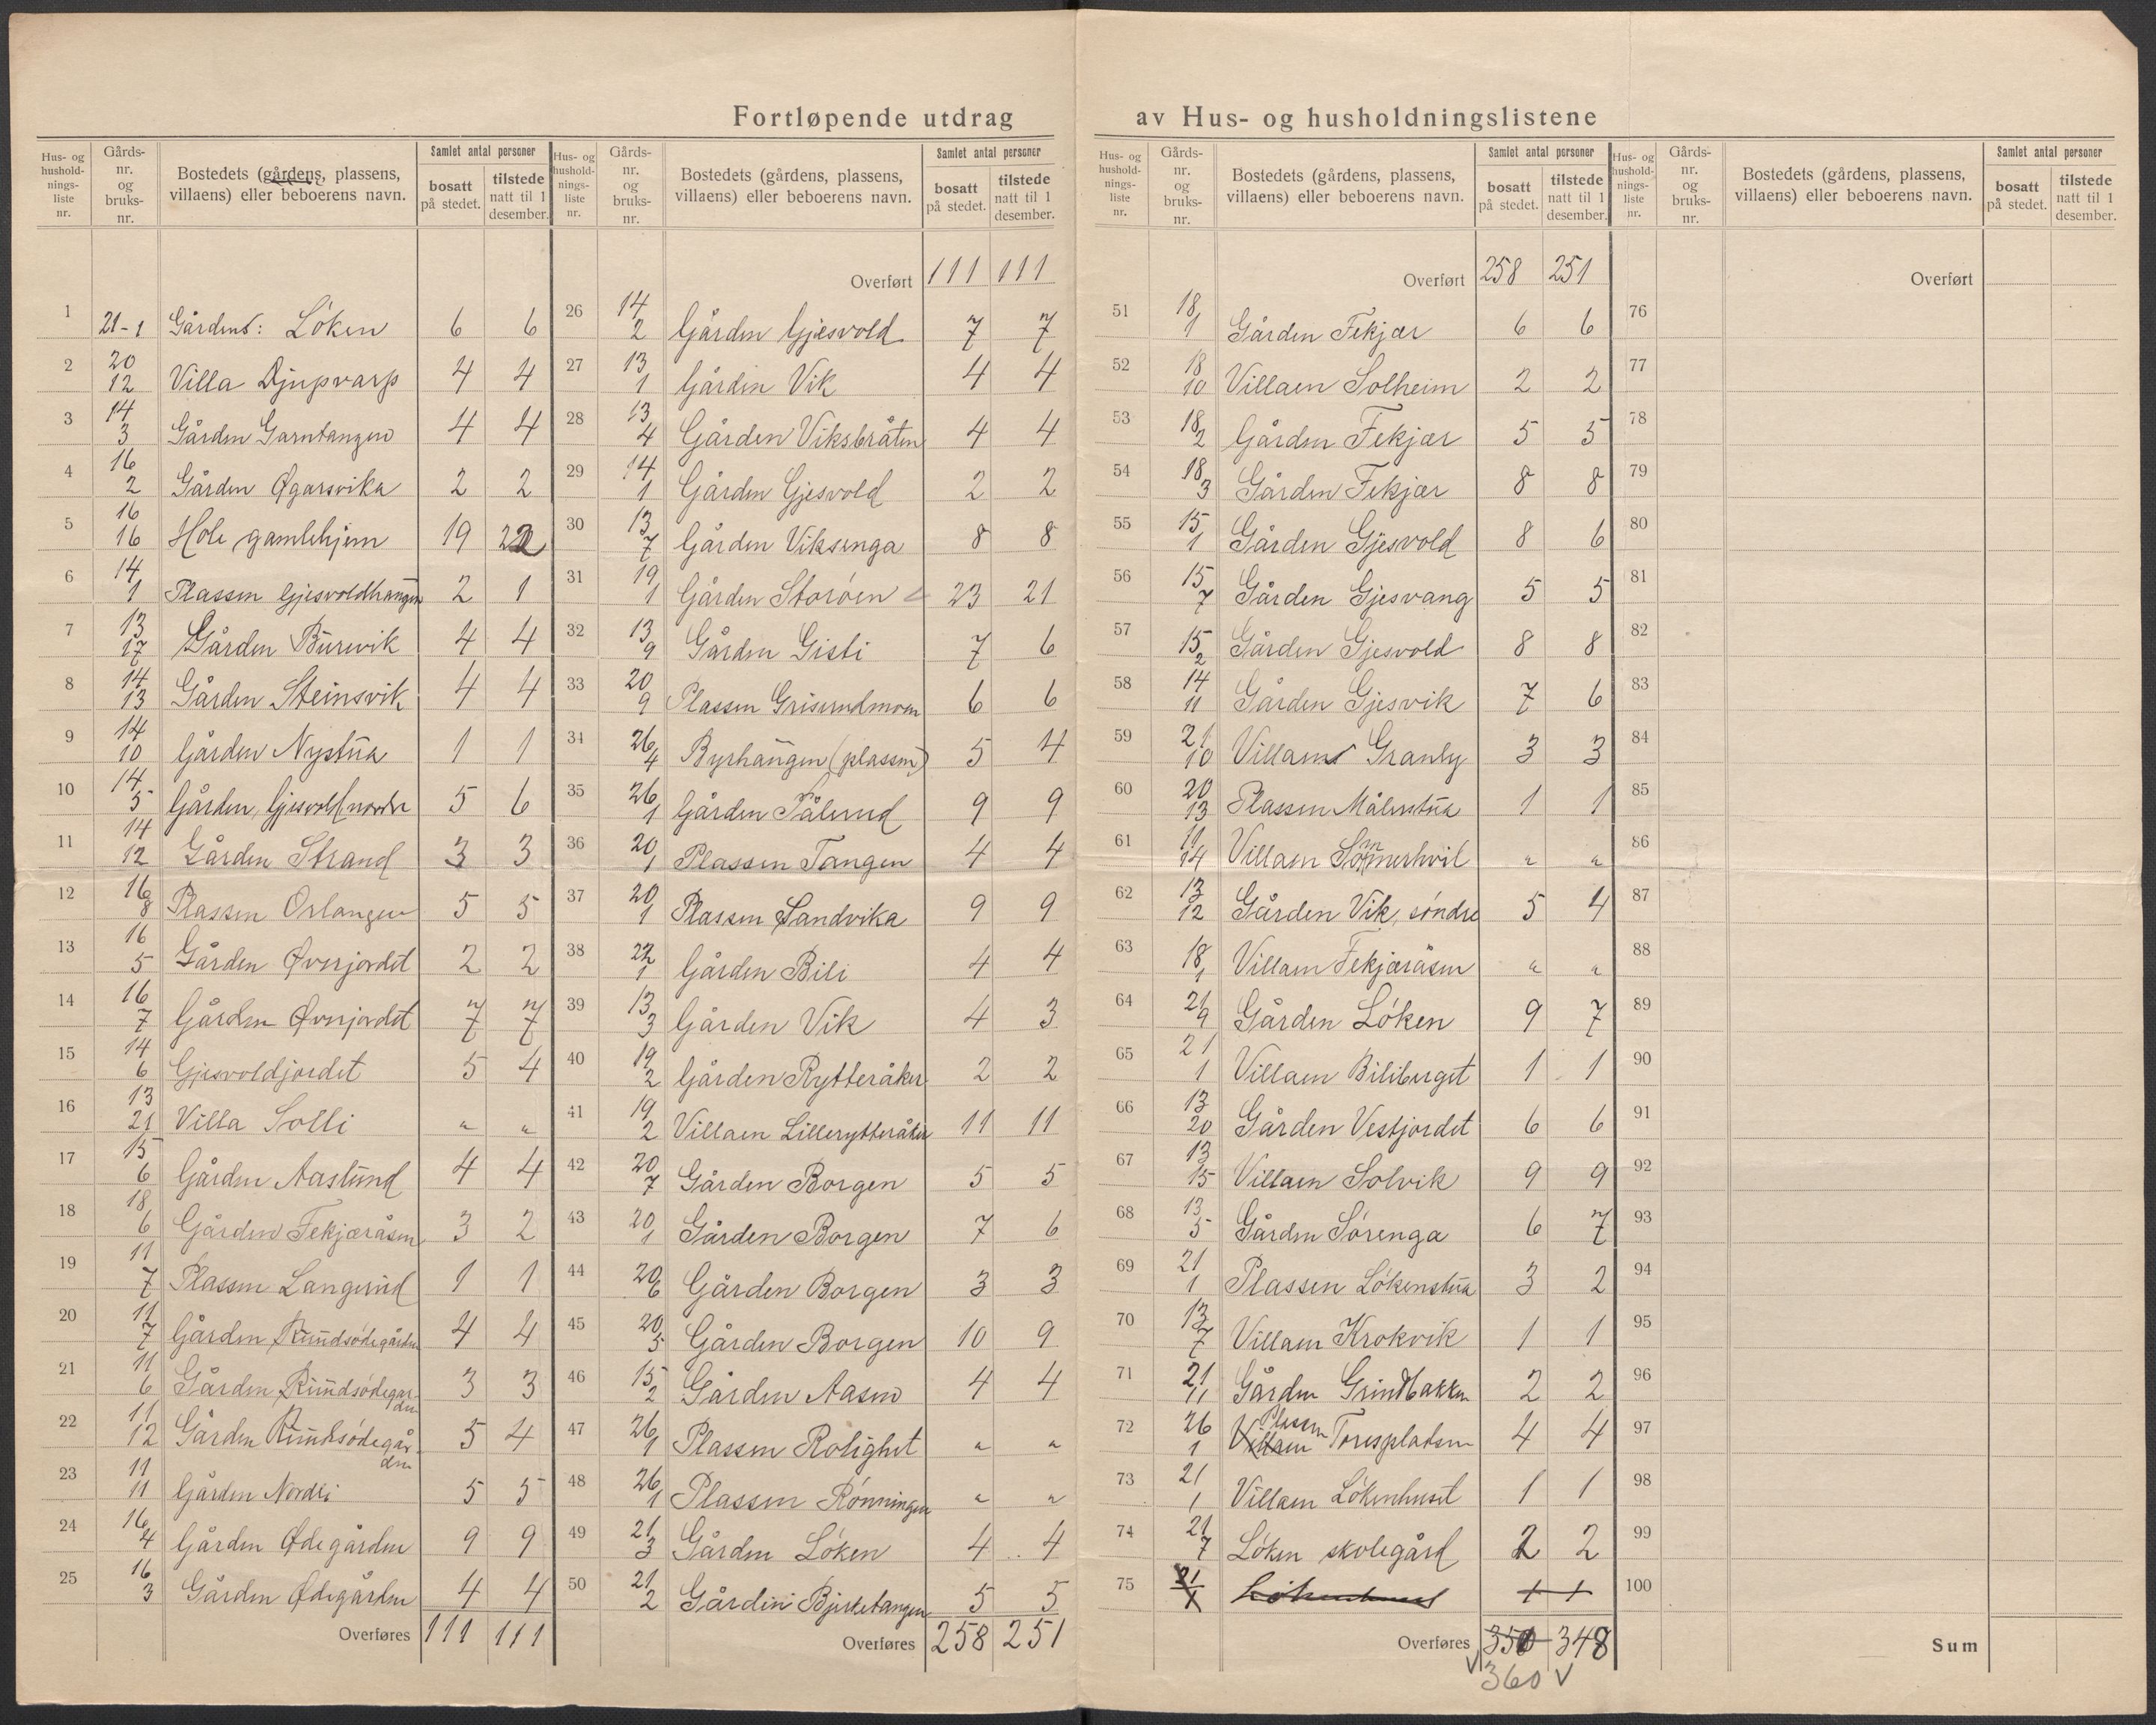 Fortløpende utdrag av Hus- og husholdningslistene
Hus- og hushold-nings-liste nr. | Gårds-nr. og bruks-nr. | Bostedets (gårdens, plassens, villaens) eller beboerens navn. | Samlet antal personer | bosatt på stedet. | tilstede natt til 1 desember.
1 21-1 Gårdens: Löken 6 6
2 20 12 Villa Djupvarp 4 4
3 14 3 Gården Garntangen 4 4
4 16 2 Gården Øgarsvika 2 2
5 16 16 Hole gamlehjem 19 22
6 14 1 Plassen Gjesvoldhaugen 2 1
7 13 17 Gården Burevik 4 4
8 14 13 Gården Steinsvik 4 4
9 14 10 Gården Nystua 1 1
10 14 5 Gården Gjesvold nordre 5 6
11 14 12 Gården Strand 3 3
12 16 8 Plassen Orlangen 5 5
13 16 5 Gården Øverjordet 2 2
14 16 7 Gården Øverjordet 7 7
15 14 6 Gjesvoldjordet 5 4
16 13 21 Villa Solli " "
17 15 6 Gården Aaslund 4 4
18 18 6 Gården Fekjæråsen 3 2
19 11 7 Plassen Langerud 1 1
20 11 7 Gården Rundsödegården 4 4
21 11 6 Gården Rundsödegården 3 3
22 11 12 Gården Rundsödegården 5 4
23 11 11 Gården Nordli 5 5
24 16 4 Gården Ødegården 9 9
25 16 3 Gården Ødegården 4 4
Overføres 111 111
Hus- og hushold-nings-liste nr. | Gårds-nr. og bruks-nr. | Bostedets (gårdens, plassens, villaens) eller beboerens navn. | Samlet antal personer | bosatt på stedet. | tilstede natt til 1 desember.
Overført 111 111
26 14 2 Gården Gjesvold 7 7
27 13 1 Gården Vik 4 4
28 13 4 Gården Viksbråten 4 4
29 14 1 Gården Gjesvold 2 2
30 13 7 Gården Viksenga 8 8
31 19 1 Gården Storöen 23 21
32 13 9 Gården Gisti 7 6
33 20 9 Plassen Grisrudmoen 6 6
34 26 4 Byrhaugen (plassen) 5 4
35 26 1 Gården Pålsrud 9 9
36 20 1 Plassen Tangen 4 4
37 20 1 Plassen Sandvika 9 9
38 22 1 Gården Bili 4 4
39 13 3 Gården Vik 4 3
40 19 2 Gården Rytteråker 2 2
41 19 2 Villaen Lillerytteråker 11 11
42 20 7 Gården Borgen 5 5
43 20 1 Gården Borgen 7 6
44 20 6 Gården Borgen 3 3
45 20 5 Gården Borgen 10 9
46 15 2 Gården Aasen 4 4
47 26 1 Plassen Rolighet " "
48 26 1 Plassen Rönningen " "
49 21 3 Gården Löken 4 4
50 21 2 Gården Bjerketangen 5 5
Overføres 258 251
Hus- og hushold-nings-liste nr. | Gårds-nr. og bruks-nr. | Bostedets (gårdens, plassens, villaens) eller beboerens navn. | Samlet antal personer | bosatt på stedet. | tilstede natt til 1 desember.
Overført 258 251
51 18 1 Gården Fekjær 6 6
52 18 10 Villaen Solheim 2 2
53 18 2 Gården Fekjær 5 5
54 18 3 Gården Fekjær 8 8
55 15 1 Gården Gjesvold 8 6
56 15 7 Gården Gjesvang 5 5
57 15 2 Gården Gjesvold 8 8
58 14 11 Gården Gjesvik 7 6
59 21 10 Villaens Granly 3 3
60 20 13 Plassen Målerstua 1 1
61 11 14 Villaen Sommerhvil " "
62 13 12 Gården Vik, söndre 5 4
63 18 1 Villaen Fekjæråsen " "
64 21 9 Gården Löken 9 7
65 21 1 Villaen Biliberget 1 1
66 13 20 Gården Vestjordet 6 6
67 13 15 Villaen Solvik 9 9
68 13 5 Gården Sörenga 6 7
69 21 1 Plassen Lökenstua 3 2
70 13 7 Villaen Krokvik 1 1
71 21 11 Gården Grindbakken 2 2
72 26 1 Villaen Plassen Torespladsen 4 4
73 21 1 Villaen Lökenhuset 1 1
74 21 7 Löken skolegård 2 2
75 21 1 1 1
Overføres 350 348
360
Hus- og hushold-nings-liste nr. | Gårds-nr. og bruks-nr. | Bostedets (gårdens, plassens, villaens) eller beboerens navn. | Samlet antal personer | bosatt på stedet. | tilstede natt til 1 desember.
Overført
76
77
78
79
80
81
82
83
84
85
86
87
88
89
90
91
92
93
94
95
96
97
98
99
100
Sum